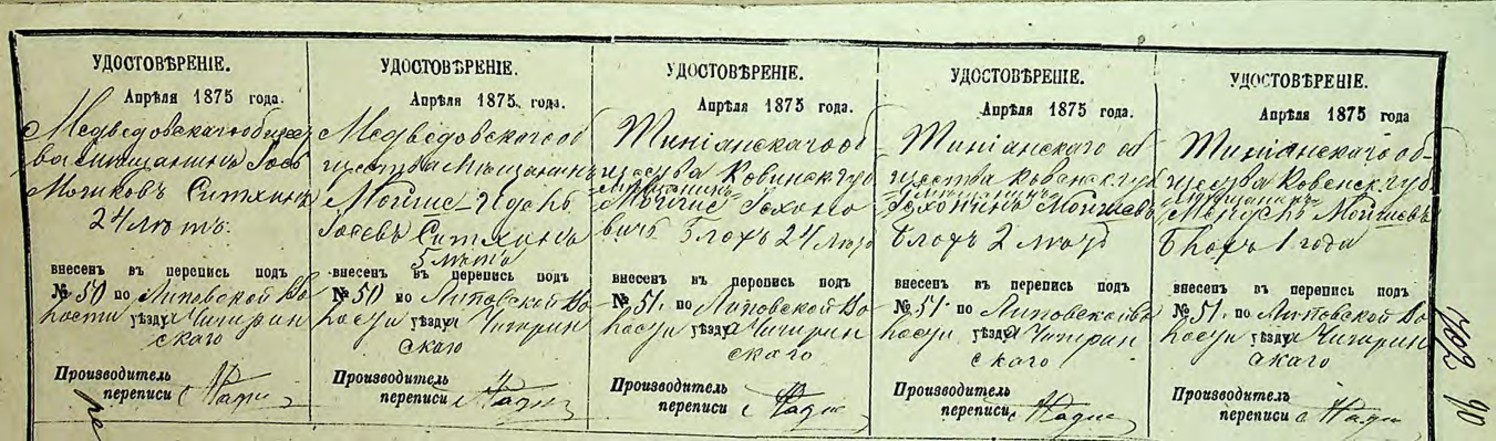 УДОСТОВѢРЕНІЕ.
Апрѣля 1875 года.
Медведовскаго общест
ва мещанинъ Іось
Мошковъ Ситхинъ
24 лѣтъ.
внесенъ въ перепись подъ
№ 50 по Липовской Во
лости уѣзду Чигирин
скаго
Производитель
переписи
УДОСТОВѢРЕНІЕ.
Апрѣля 1875 года.
Медведовскаго об
щества Мѣщанинъ
Мойше-Іудель
Іосевъ Ситхинъ
5 лѣтъ
внесенъ въ перепись подъ
№ 50 по Липовской Во
лости уѣзду Чигирин
скаго
Производитель
переписи
УДОСТОВѢРЕНІЕ.
Апрѣля 1875 года.
об
щества Ковенск. губ
мѣщанинъ
Мойше
вичъ Блохъ 24 лѣтъ
внесенъ въ перепись подъ
№ 51. по Липовской Во
лости уѣзду Чигирин
скаго
Производитель
переписи
УДОСТОВѢРЕНІЕ.
Апрѣля 1875 года.
об
щества Ковенск. губ
мѣщанинъ
Мойшевъ
Блохъ 2 лѣтъ
внесенъ въ перепись подъ
№ 51. по Липовской Во
лости уѣзду Чигирин
скаго
Производитель
переписи
УДОСТОВѢРЕНІЕ.
Апрѣля 1875 года
об-
щества Ковенск. губ
мѣщанинъ
Мендель Мойшевъ
Блохъ 1 года
внесенъ въ перепись подъ
№ 51. по Липовской Во
лости уѣзду Чигирин
скаго
Производитель
переписи